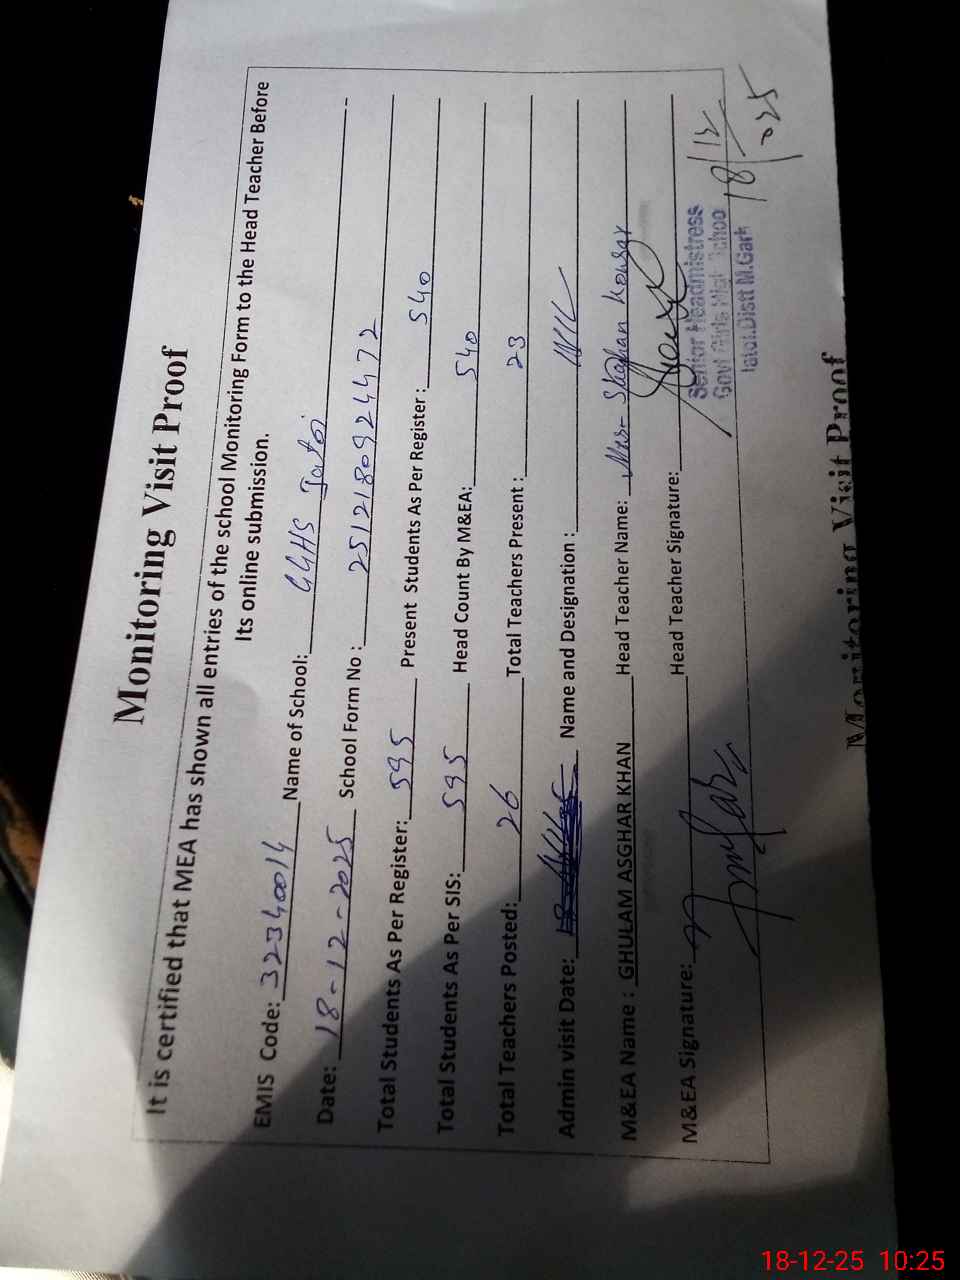 Monitoring Visit Proof
It is certified that MEA has shown all entries of the school Monitoring Form to the Head Teacher Before
Its online submission.
EMIS Code: 32340014 Name of School: GGHS Jatoi
Date: 18-12-2025 School Form No : 2512180924472
Total Students As Per Register: 595 Present Students As Per Register : 540
Total Students As Per SIS: 595 Head Count By M&EA: 540
Total Teachers Posted: 26 Total Teachers Present : 23
Admin visit Date: Name and Designation : NIL
M&EA Name : GHULAM ASGHAR KHAN Head Teacher Name: Mrs- Shaghan Kousar
M&EA Signature: Head Teacher Signature:
18/12/2025
Senior Headmistress
Govt Girls High School
Jatoi.Distt M.Garh
Monitoring Visit Proof
18-12-25 10:25